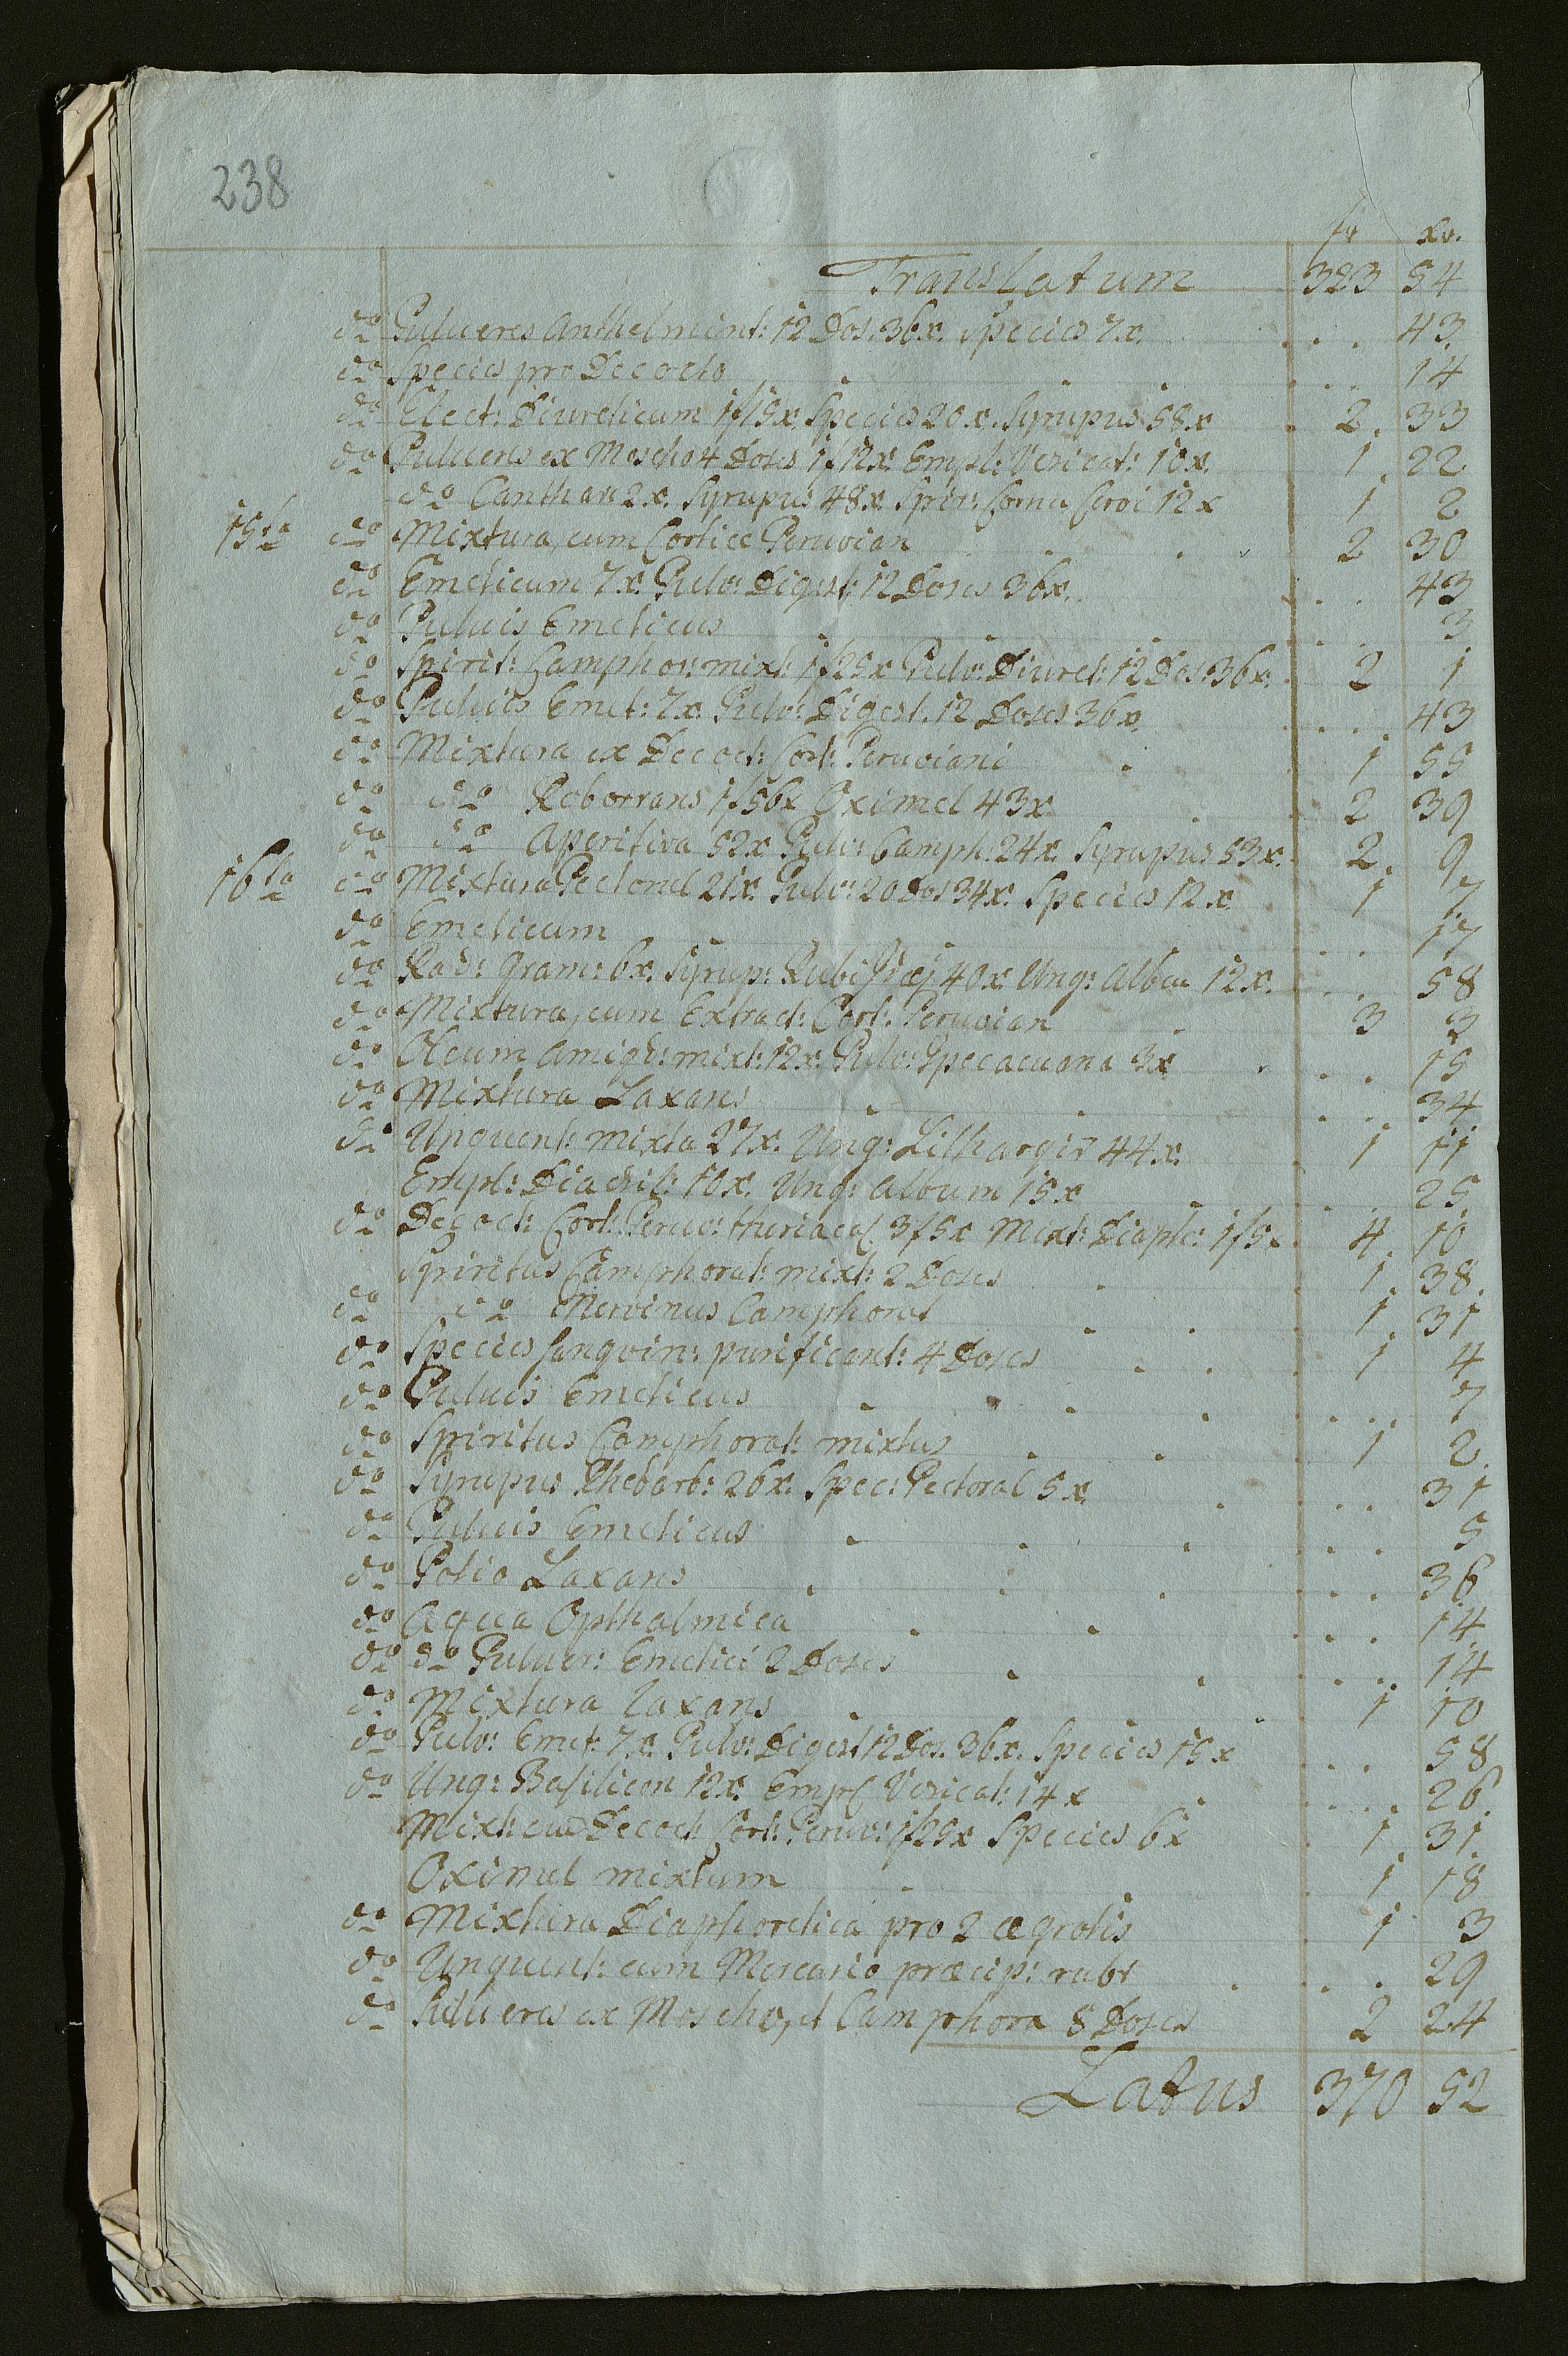 238
fr xr.
Translatum 323 54
do Pulveres Anthelmint: 12 Dos: 36x. Species 7x. . . . 43
do Species pro Decocto . . . 14
do Elect: Diureticum 1f15x. Species 20x. Syrupus 58x 2. 33
do Pulveres ex Moscho 4 Doses 1f12x. Empl: Vesicat: 10x. 1. 22
do Canthar 2x. Syrupus 48x. Spir: Cornu Cervi 12x 1 2
15ta do Mixtura, cum Cortice Peruvian 2 30
do Emeticum 7x. Pulv: Digest: 12 Doses 36x. . . 43
do Pulvis Emeticus . . . 3
do Spirit: Camphor: mixt: 1f25x Pulv: Diuret: 12 Dos: 36x. 2 1
do Pulvis Emet: 7x. Pulv: Digest. 12 Doses 36x. . . . 43
do Mixtura ex Decoct: Cort: Peruviani 1 55
do do Roborrans 1f56x Oximel 43x 2 39
do do Aperitiva 52x Pulv: Camph: 24x. Syrupus 53x. 2. 9
16ta do Mixtura Pectoral 21x. Pulv: 20 Dos 34x. Species 12x 1 7
do Emeticum . . . 17
do Rad: Gram: 6x. Syrup: Rubi Idæj 40x. Ung: Album 12x. . . 58
do Mixtura, cum Extract: Cort: Peruvian 3 3
do Oleum Amigd: mixt: 12x. Pulv: Ypecacuana 3x . . . 15
do Mixtura Laxans . . . 34
do Unguent: mixta 27x. Ung: Lithargir 44x. 1 11
Empl: Diachil: 10x. Ung: Album 15x . . . 25
do Decoct: Cort: Peruv: theriacal 3f5x Mixt: Diapho: 1f5x 4. 10
Spiritus Camphorat: mixt: 2 Doses 1. 38.
do do Nervinus Camphorat 1 31
do Species Sanguin: purificant: 4 Doses 1 4
do Pulvis Emeticus . . . 7
do Spiritus Camphorat: mixtus 1 2.
do Syrupus Rhebarb: 26x. Spec: Pectoral 5x . . . 31
do Pulvis Emeticus . . . 5
do Potio Laxans . . . 36
do Aqua Opthalmica . . . 14
do do Pulver: Emetici 2 Doses . . . 14
do Mixtura Laxans 1 10
do Pulv: Emet: 7x. Pulv: Digest 12 Dos. 36x. Species 15x . . . 58
do Ung: Basilicon 12x. Empl Vesicat: 14x . . . . 26.
Mixt: cu Decoct Cort: Peruv: 1f25x Species 6x 1. 31.
Oximel mixtum 1. 18
do Mixtura Diaphoretica pro 2 ægrotis 1 3
do Unguent: cum Mercurio præcip: rubr . . . 29
do Pulveres ex Moscho, et Camphora 8 Doses 2 24
Latus 370 52